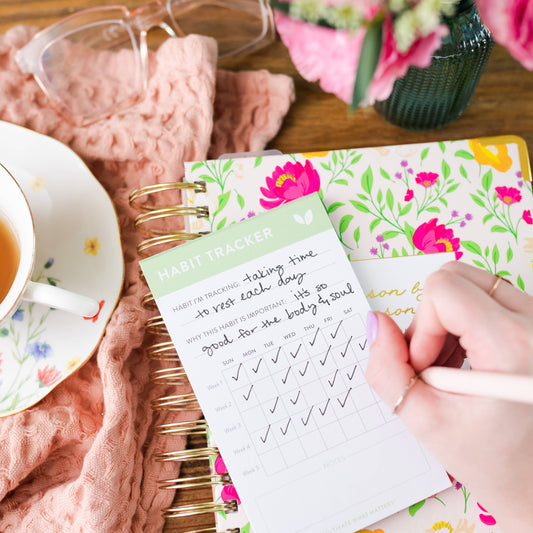 HABIT TRACKER
HABIT I'M TRACKING: taking time
to rest each day
WHY THIS HABIT IS IMPORTANT: it's so
good for the body & soul
SUN MON TUE WED THU FRI SAT
Week 1
Week 2
Week 3
Week 4
Week 5
NOTES
CULTIVATE WHAT MATTERS